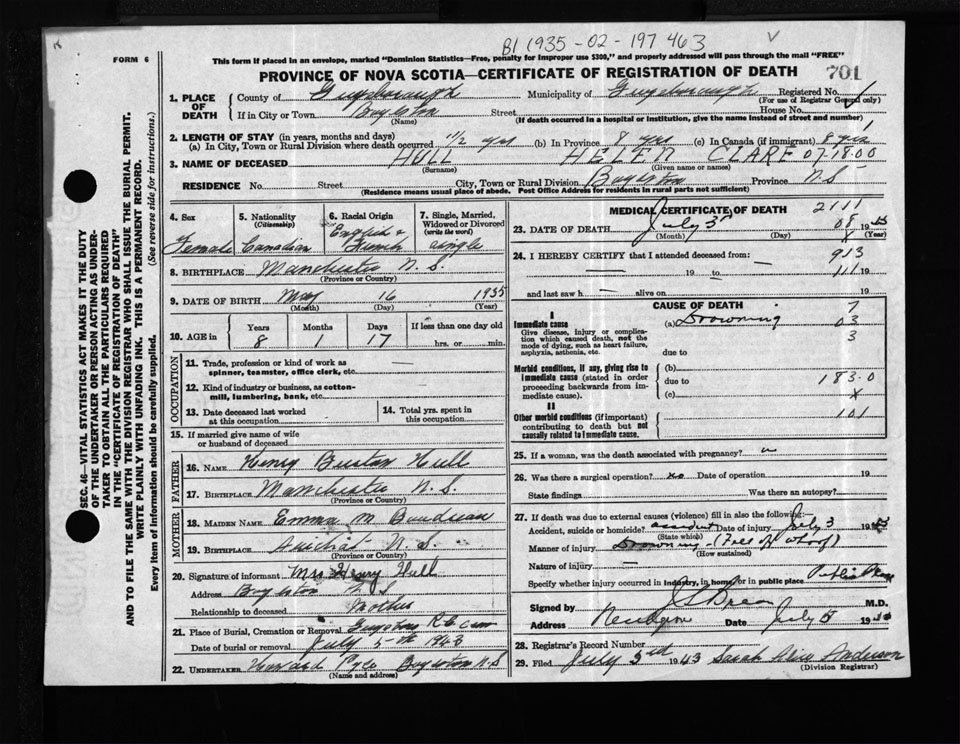 B1 1935-02-197 463
FORM 6
This form if placed in an envelope, marked "Dominion Statistics—Free, penalty for improper use $300," and properly addressed will pass through the mail "FREE"
PROVINCE OF NOVA SCOTIA—CERTIFICATE OF REGISTRATION OF DEATH 701
SEC. 46—VITAL STATISTICS ACT MAKES IT THE DUTY
OF THE UNDERTAKER OR PERSON ACTING AS UNDER-
TAKER TO OBTAIN ALL THE PARTICULARS REQUIRED
IN THE "CERTIFICATE OF REGISTRATION OF DEATH"
AND TO FILE THE SAME WITH THE DIVISION REGISTRAR WHO SHALL ISSUE THE BURIAL PERMIT.
WRITE PLAINLY WITH UNFADING INK. THIS IS A PERMANENT RECORD.
Every item of Information should be carefully supplied. (See reverse side for instructions.)
1. PLACE OF DEATH County of Guysborough Municipality of Guysborough Registered No.
(For use of Registrar General only)
If in City or Town Boylston Street House No.
(Name) (If death occurred in a hospital or institution, give name instead of street and number)
2. LENGTH OF STAY (in years, months and days)
(a) In City, Town or Rural Division where death occurred 1 1/2 yrs (b) In Province 8 yrs (c) In Canada (if immigrant) 8 yrs
3. NAME OF DECEASED HULL HELEN CLARE 0718.00
(Surname) (Given name or names)
RESIDENCE No. Street City, Town or Rural Division Boylston Province N.S
(Residence means usual place of abode. Post Office Address for residents in rural parts not sufficient)
4. Sex Female
5. Nationality (Citizenship) Canadian
6. Racial Origin English & French
7. Single, Married, Widowed or Divorced (write the word) single
8. BIRTHPLACE Manchester N.S.
(Province or Country)
9. DATE OF BIRTH May 16 1935
(Month) (Day) (Year)
10. AGE in Years 8 Months 1 Days 17 If less than one day old hrs. or min.
OCCUPATION
11. Trade, profession or kind of work as spinner, teamster, office clerk, etc. —
12. Kind of industry or business, as cotton-mill, lumbering, bank, etc.
13. Date deceased last worked at this occupation
14. Total yrs. spent in this occupation
15. If married give name of wife or husband of deceased
FATHER
16. NAME Henry Hull
17. BIRTHPLACE Manchester N.S.
(Province or Country)
MOTHER
18. MAIDEN NAME Emma M Boudreau
19. BIRTHPLACE Arichat N.S.
(Province or Country)
20. Signature of informant Mrs Henry Hull
Address Boylston N.S
Relationship to deceased Mother
21. Place of Burial, Cremation or Removal Guysboro R.C.
Date of burial or removal July 5th 1943
22. UNDERTAKER Howard Pyle Boylston N.S
(Name and address)
MEDICAL CERTIFICATE OF DEATH 2111
23. DATE OF DEATH July 3 08
(Month) (Day) (Year)
24. I HEREBY CERTIFY that I attended deceased from: — 913
— 19 to — 111 19
and last saw h — alive on 19
CAUSE OF DEATH 7
I
Immediate cause (a) Drowning 03
Give disease, injury or complication which caused death, not the mode of dying, such as heart failure, asphyxia, asthenia, etc. 3
due to
Morbid conditions, if any, giving rise to immediate cause (stated in order proceeding backwards from immediate cause). (b)
due to 183.0
(c) x
II
Other morbid conditions (if important) contributing to death but not causally related to immediate cause. 101
25. If a woman, was the death associated with pregnancy?
26. Was there a surgical operation? no Date of operation 19
State findings Was there an autopsy?
27. If death was due to external causes (violence) fill in also the following:
Accident, suicide or homicide? accident Date of injury July 3 1943
(State which)
Manner of injury Drowning (Free of wharf)
(How sustained)
Nature of injury —
Specify whether injury occurred in Industry, in home, or in public place Public Place
Signed by M.D.
Address Date July 5 19
28. Registrar's Record Number
29. Filed July 5rd 1943 Sarah Anderson
(Division Registrar)